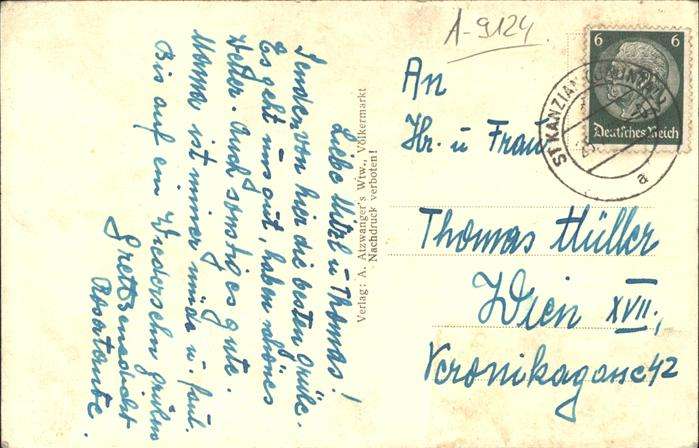 A-9124
6 6
Deutsches Reich
ST KANZIAN
a
An
Hr. u Frau
Thomas Müller
Wien XVII.,
Veronikagasse 42
Verlag: A. Atzwanger's Wtw., Völkermarkt
Nachdruck verboten!
Liebe Mitzl u Thomas!
Senden von hier die besten Grüße.
Es geht uns gut, haben schönes
Wetter. Auch sonst ist es gute.
Mama ist immer müde u. faul.
Bis auf ein Wiedersehn grüßen
Gretl